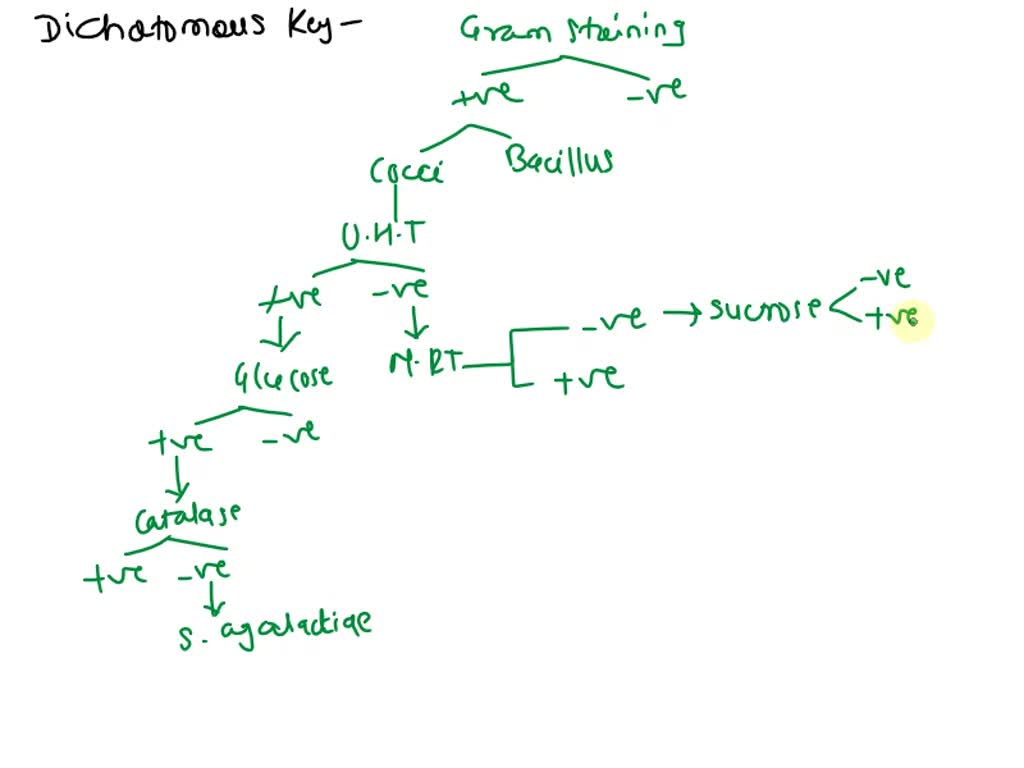 Dichotomous Key –
Gram staining
+ve –ve
Cocci Bacillus
U.H.T
+ve –ve
Glucose
M.RT
–ve → sucrose
–ve
+ve
+ve
+ve –ve
Catalase
+ve –ve
S. agalactiae